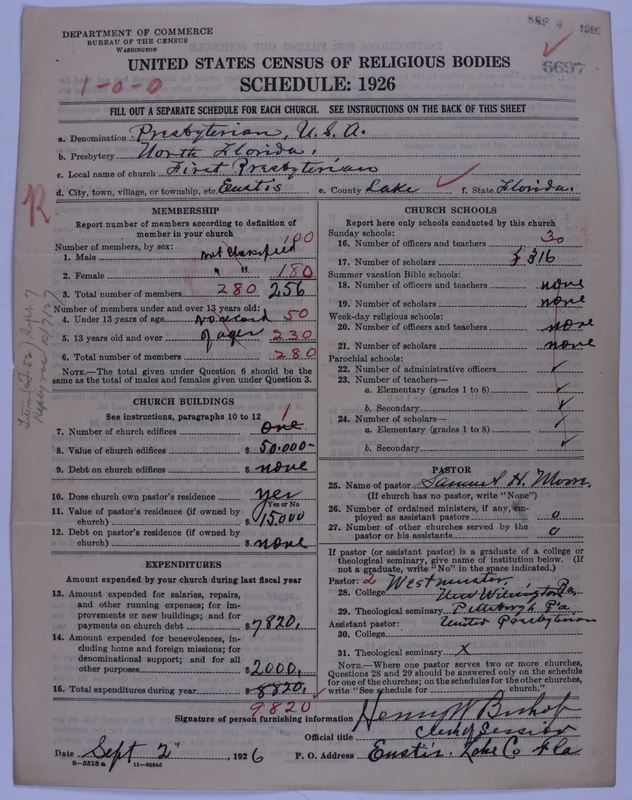 DEPARTMENT OF COMMERCE
BUREAU OF THE CENSUS
WASHINGTON
SEP 4 1926
6697
UNITED STATES CENSUS OF RELIGIOUS BODIES
1-0-0
SCHEDULE: 1926
FILL OUT A SEPARATE SCHEDULE FOR EACH CHURCH. SEE INSTRUCTIONS ON THE BACK OF THIS SHEET
a. Denomination Presbyterian, U.S.A.
b. Presbytery North Florida.
c. Local name of church First Presbyterian
d. City, town, village, or township, etc. Eustis e. County Lake f. State Florida.
R
MEMBERSHIP
Report number of members according to definition of
member in your church
Number of members, by sex: 100
1. Male not classified
2. Female " " 180
3. Total number of members 280 256
Number of members under and over 13 years old:
4. Under 13 years of age no record 50
5. 13 years old and over of ages 230
6. Total number of members 280
NOTE.—The total given under Question 6 should be
the same as the total of males and females given under Question 3.
CHURCH BUILDINGS
See instructions, paragraphs 10 to 12
7. Number of church edifices one 1
8. Value of church edifices $ 50.000-
9. Debt on church edifices $ none
10. Does church own pastor's residence yes
Yes or No
11. Value of pastor's residence (if owned by
church) $ 15.000
12. Debt on pastor's residence (if owned by
church) $ none
EXPENDITURES
Amount expended by your church during last fiscal year
13. Amount expended for salaries, repairs,
and other running expenses; for im-
provements or new buildings; and for
payments on church debt $ 7820.
14. Amount expended for benevolences, in-
cluding home and foreign missions; for
denominational support; and for all
other purposes $ 2000.
15. Total expenditures during year $ 8820.
9820
CHURCH SCHOOLS
Report here only schools conducted by this church
Sunday schools:
16. Number of officers and teachers 30
17. Number of scholars 316
Summer vacation Bible schools:
18. Number of officers and teachers none
19. Number of scholars none
Week-day religious schools:
20. Number of officers and teachers none
21. Number of scholars none
Parochial schools:
22. Number of administrative officers
23. Number of teachers—
a. Elementary (grades 1 to 8)
b. Secondary
24. Number of scholars—
a. Elementary (grades 1 to 8)
b. Secondary
PASTOR
25. Name of pastor Samuel H. Moore.
(If church has no pastor, write "None")
26. Number of ordained ministers, if any, em-
ployed as assistant pastors 0
27. Number of other churches served by the
pastor or his assistants 0
If pastor (or assistant pastor) is a graduate of a college or
theological seminary, give name of institution below. (If
not a graduate, write "No" in the space indicated.)
Pastor: 2 Westminster.
28. College New Wilmington Pa
29. Theological seminary Pittsburgh Pa.
Assistant pastor: United Presbyterian
30. College
31. Theological seminary X
NOTE.—Where one pastor serves two or more churches,
Questions 28 and 29 should be answered only on the schedule
for one of the churches; on the schedules for the other churches,
write "See schedule for church."
Signature of person furnishing information Henry W Bishop
Official title Clerk of Session
Date Sept 2", 1926 P. O. Address Eustis. Lake Co Fla
9—5518 a 11—9056d